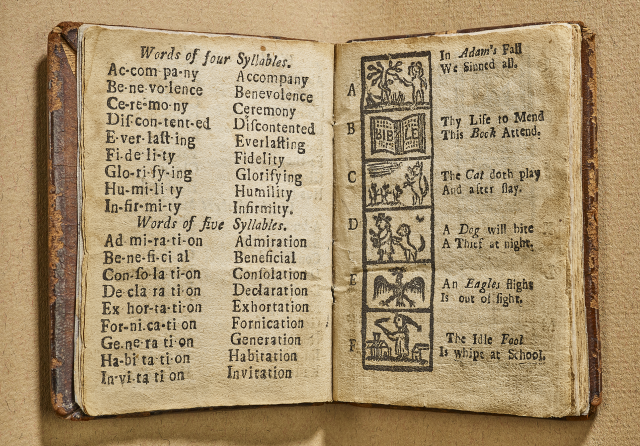 Words of four Syllables.
Ac-com pa-ny Accompany
Be-ne vo-lence Benevolence
Ce-re-mo-ny Ceremony
Diſ-con-tent-ed Diſcontented
E-ver-laſt-ing Everlaſting
Fi-de-li-ty Fidelity
Glo-ri-fy-ing Glorifying
Hu-mi-li-ty Humility
In-fir-mi-ty Infirmity.
Words of five Syllables.
Ad mi-ra-ti-on Admiration
Be-ne-fi-ci al Beneficial
Con-ſo-la ti-on Conſolation
De-cla ra ti-on Declaration
Ex hor-ta-ti-on Exhortation
For-ni-ca-ti on Fornication
Ge-ne-ra ti on Generation
Ha-bi ta ti-on Habitation
In-vi-ta ti on Invitation
A
In Adam's Fall
We Sinned all.
B
BIBLE
Thy Life to Mend
This Book Attend.
C
The Cat doth play
And after ſlay.
D
A Dog will bite
A Thief at night.
E
An Eagles flight
Is out of ſight.
F
The Idle Fool
Is whipt at School.